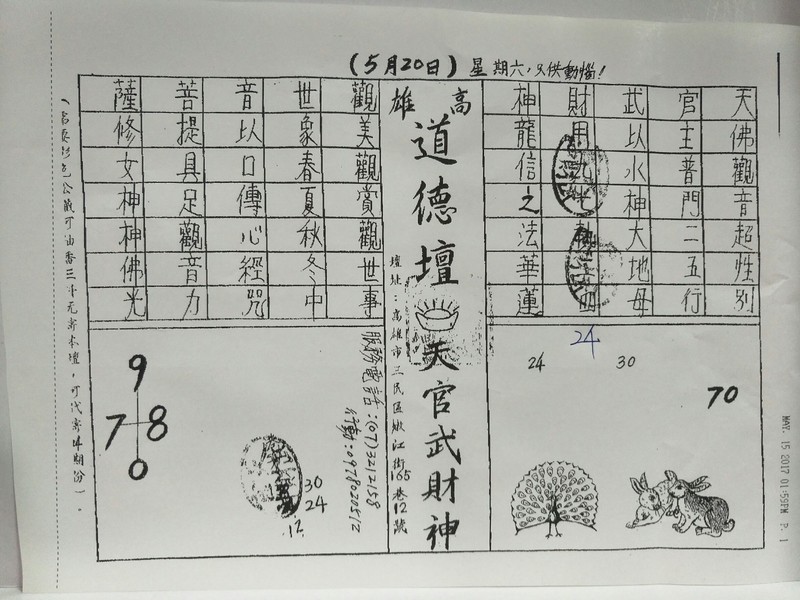 (5月20日) 星期六,只供動惱!
天佛觀音超性別
官主普門二五行
武以水神大地母
財用
神龍信之法華蓮
24
24 30
70
高雄
道德壇 天官武財神
壇址:高雄市三民區嫩江街165巷12號
服務電話:(07)3212158
行動:0918020512
觀美觀賞觀世事
世象春夏秋冬中
音以口傳心經咒
菩提具足觀音力
薩修女神神佛光
9
7 8
0
30
24
12
油香三十元寄本壇,可代寄4期份
MAY. 15 2017 01:59PM P. 1